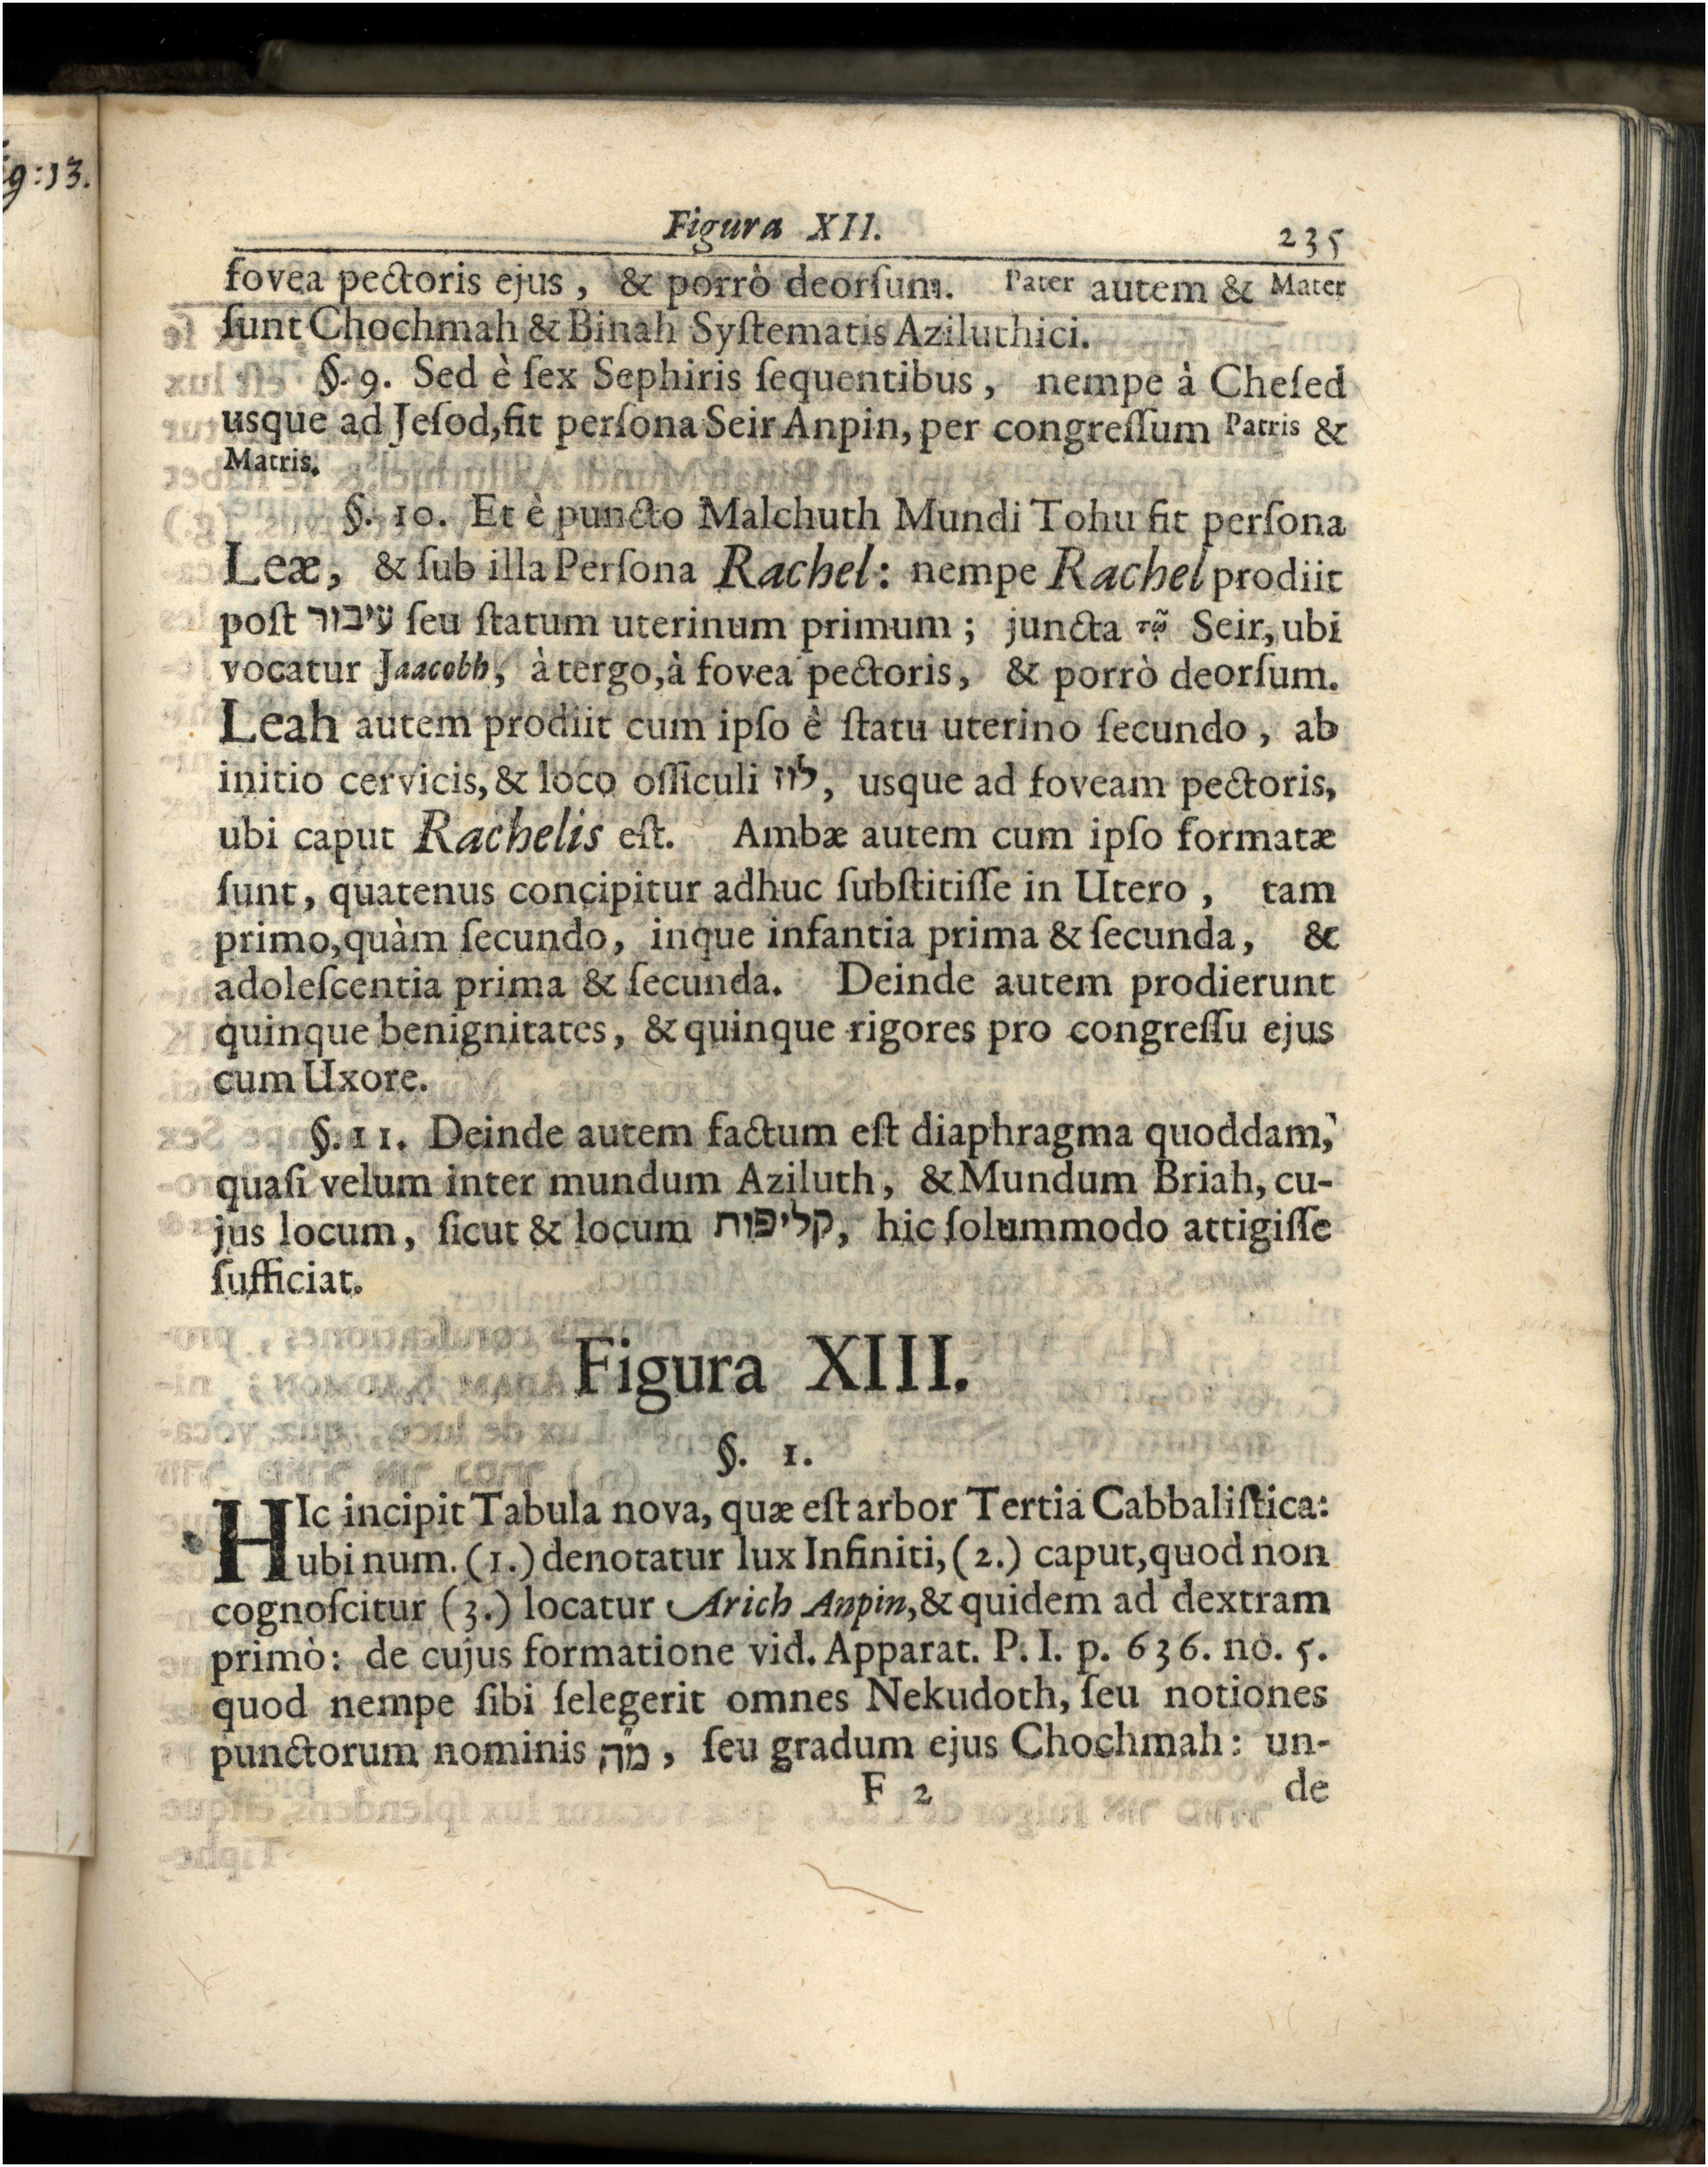 g:13.
Figura XII.
235
fovea pectoris ejus, & porrò deorſum. Pater autem & Mater
ſunt Chochmah & Binah Syſtematis Aziluthici.
§. 9. Sed è ſex Sephiris ſequentibus, nempe à Cheſed
usque ad Jeſod, fit perſona Seir Anpin, per congreſſum Patris &
Matris.
§. 10. Et è puncto Malchuth Mundi Tohu fit perſona
Leæ, & ſub illa Perſona Rachel: nempe Rachel prodiit
poſt עיבור ſeu ſtatum uterinum primum; juncta Seir, ubi
vocatur Jaacobh, à tergo, à fovea pectoris, & porrò deorſum.
Leah autem prodiit cum ipſo è ſtatu uterino ſecundo, ab
initio cervicis, & loco oſſiculi לוז, usque ad foveam pectoris,
ubi caput Rachelis eſt. Ambæ autem cum ipſo formatæ
ſunt, quatenus concipitur adhuc ſubſtitiſſe in Utero, tam
primo, quàm ſecundo, inque infantia prima & ſecunda, &
adoleſcentia prima & ſecunda. Deinde autem prodierunt
quinque benignitates, & quinque rigores pro congreſſu ejus
cum Uxore.
§. 11. Deinde autem factum eſt diaphragma quoddam,
quaſi velum inter mundum Aziluth, & Mundum Briah, cu-
jus locum, ſicut & locum קליפות, hic ſolummodo attigiſſe
ſufficiat.
Figura XIII.
§. 1.
HIc incipit Tabula nova, quæ eſt arbor Tertia Cabbaliſtica:
ubi num. (1.) denotatur lux Infiniti, (2.) caput, quod non
cognoſcitur (3.) locatur Arich Anpin, & quidem ad dextram
primò: de cujus formatione vid. Apparat. P. I. p. 636. no. 5.
quod nempe ſibi ſelegerit omnes Nekudoth, ſeu notiones
punctorum nominis מ״ה, ſeu gradum ejus Chochmah: un-
F 2
de